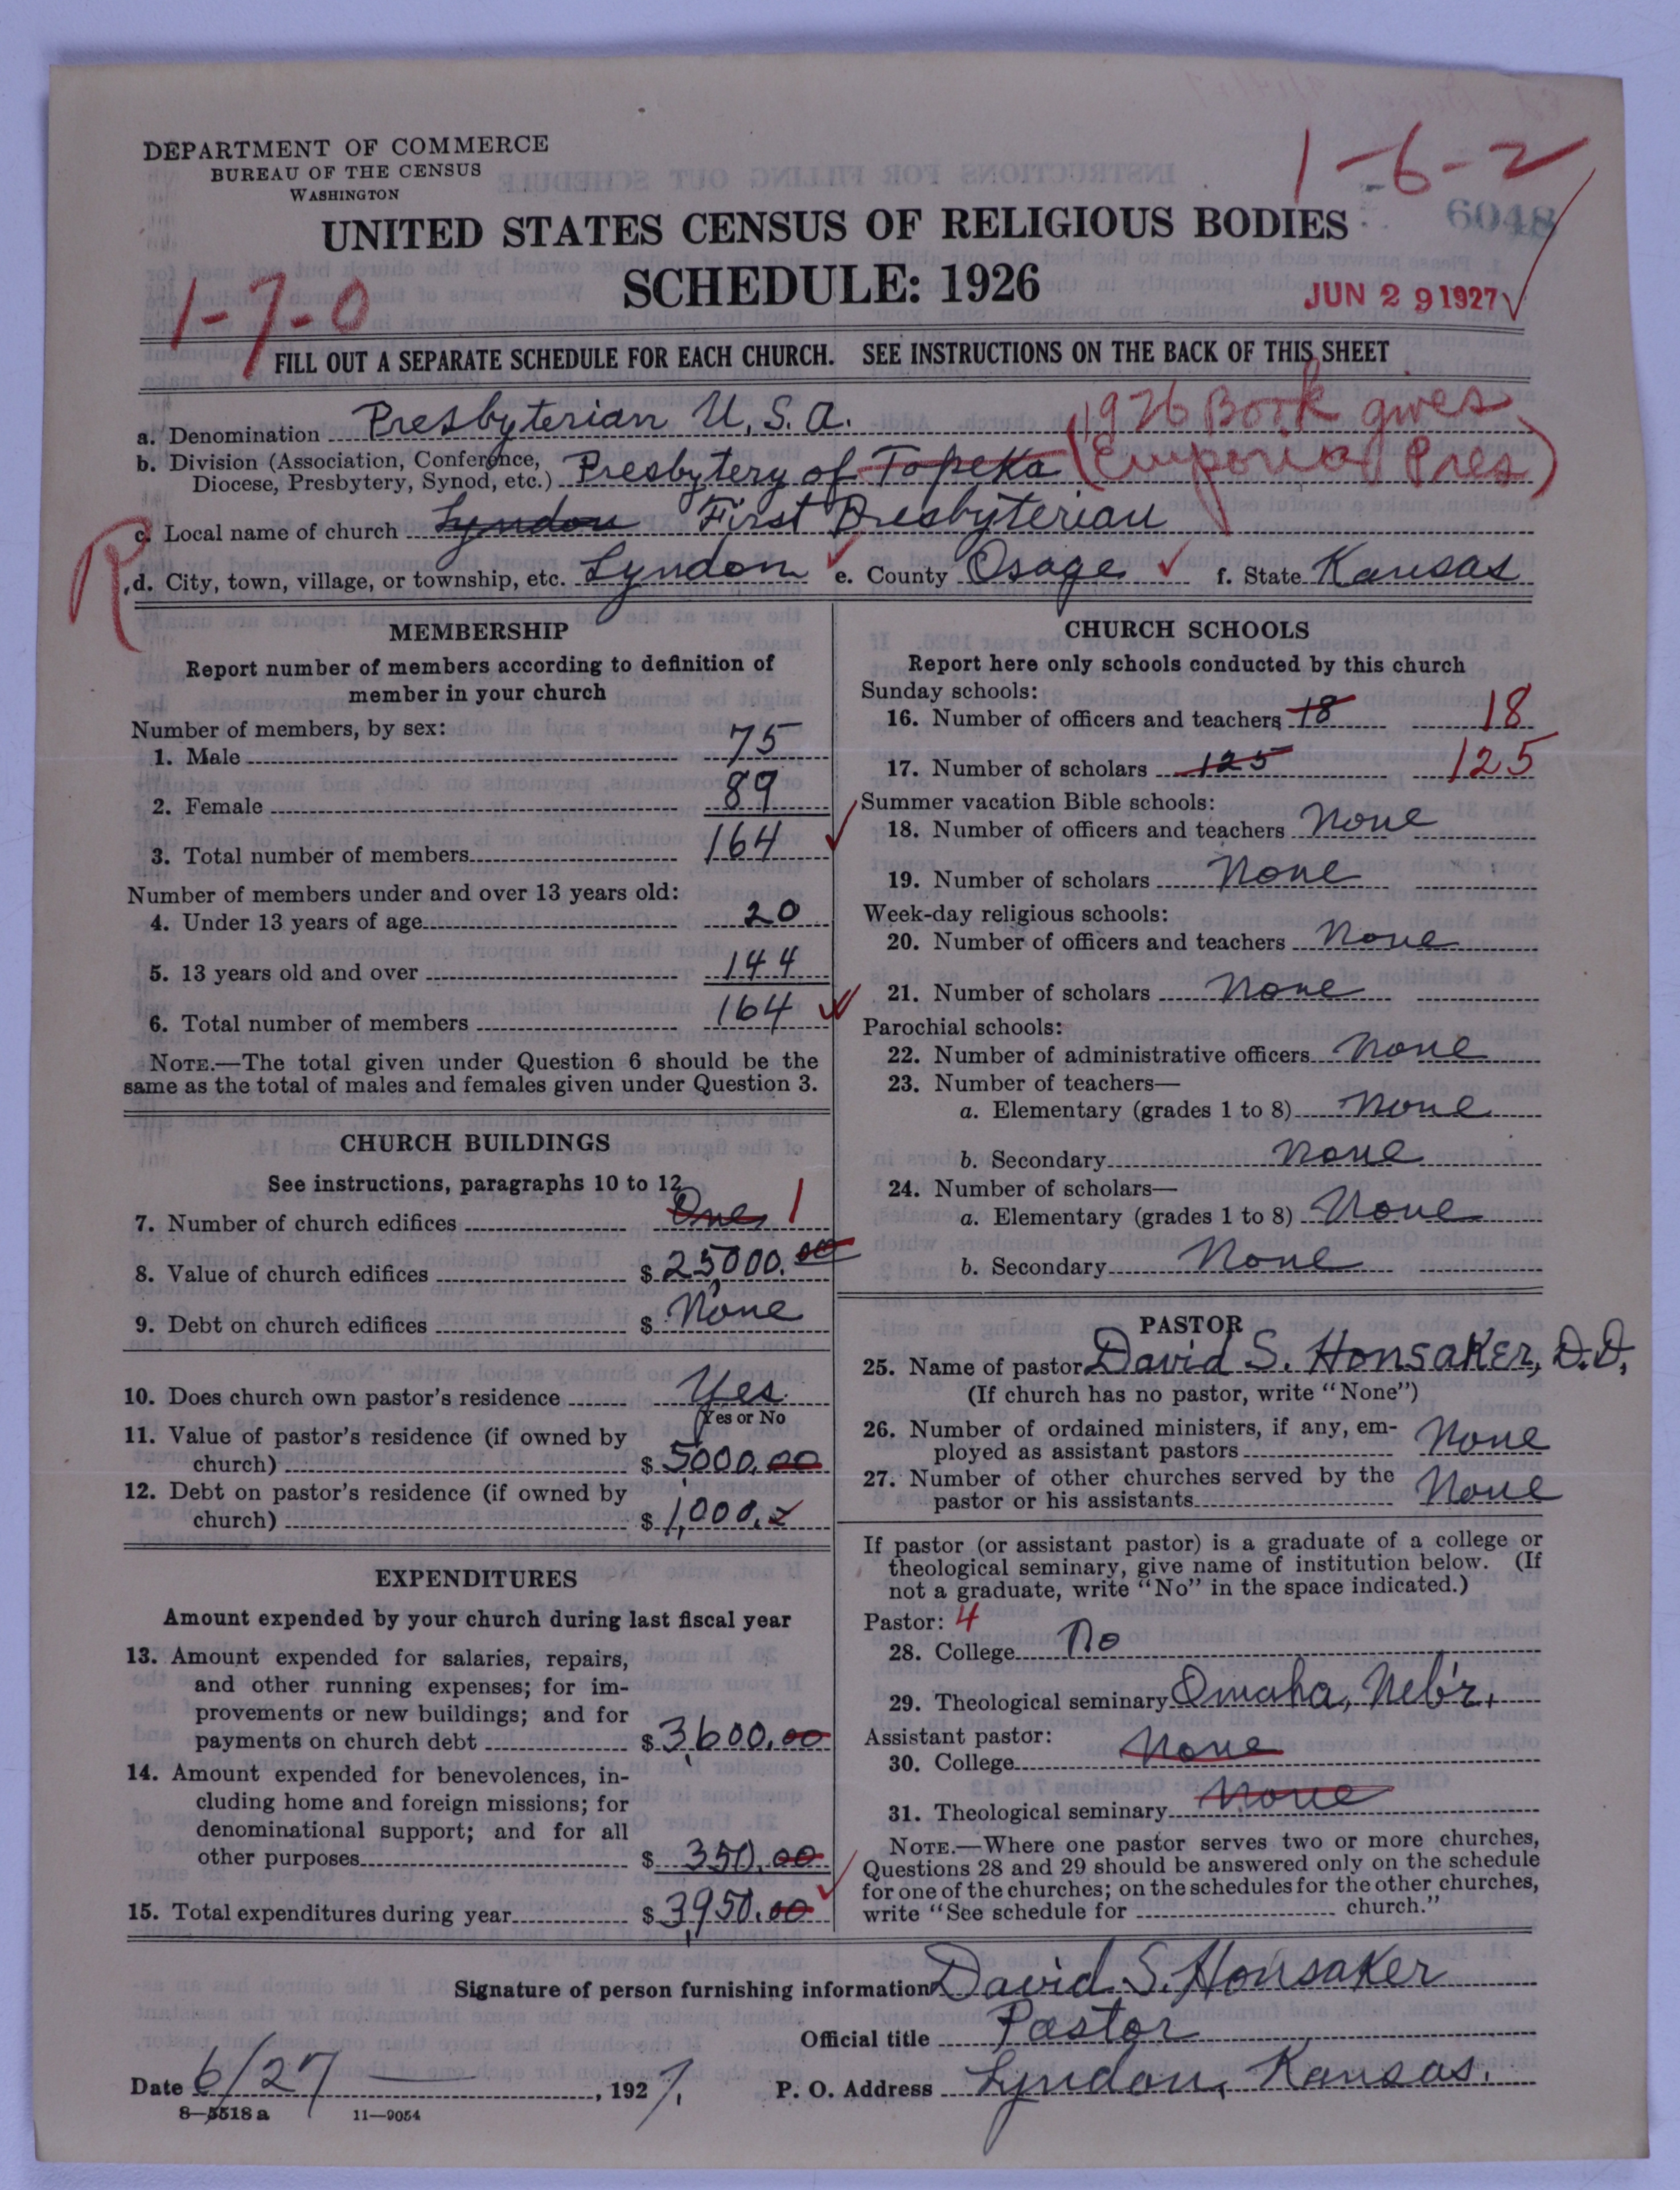 DEPARTMENT OF COMMERCE
BUREAU OF THE CENSUS
WASHINGTON
1-6-2
6048
UNITED STATES CENSUS OF RELIGIOUS BODIES
SCHEDULE: 1926
1-7-0
JUN 29 1927
FILL OUT A SEPARATE SCHEDULE FOR EACH CHURCH. SEE INSTRUCTIONS ON THE BACK OF THIS SHEET
a. Denomination Presbyterian U.S.A. (1926 Book gives
b. Division (Association, Conference,
Diocese, Presbytery, Synod, etc.) Presbytery of Topeka (Emporia Pres)
R
c. Local name of church Lyndon First Presbyterian
d. City, town, village, or township, etc. Lyndon e. County Osage f. State Kansas
MEMBERSHIP
Report number of members according to definition of
member in your church
Number of members, by sex:
1. Male 75
2. Female 89
3. Total number of members 164
Number of members under and over 13 years old:
4. Under 13 years of age 20
5. 13 years old and over 144
6. Total number of members 164
NOTE.—The total given under Question 6 should be the
same as the total of males and females given under Question 3.
CHURCH BUILDINGS
See instructions, paragraphs 10 to 12
7. Number of church edifices One 1
8. Value of church edifices $25000.00
9. Debt on church edifices $ None
10. Does church own pastor's residence Yes
Yes or No
11. Value of pastor's residence (if owned by
church) $5000.00
12. Debt on pastor's residence (if owned by
church) $1,000.
EXPENDITURES
Amount expended by your church during last fiscal year
13. Amount expended for salaries, repairs,
and other running expenses; for im-
provements or new buildings; and for
payments on church debt $3,600.00
14. Amount expended for benevolences, in-
cluding home and foreign missions; for
denominational support; and for all
other purposes $350.00
15. Total expenditures during year $3,950.00
CHURCH SCHOOLS
Report here only schools conducted by this church
Sunday schools:
16. Number of officers and teachers 18 18
17. Number of scholars 125 125
Summer vacation Bible schools:
18. Number of officers and teachers None
19. Number of scholars None
Week-day religious schools:
20. Number of officers and teachers None
21. Number of scholars None
Parochial schools:
22. Number of administrative officers None
23. Number of teachers—
a. Elementary (grades 1 to 8) None
b. Secondary None
24. Number of scholars—
a. Elementary (grades 1 to 8) None
b. Secondary None
PASTOR
25. Name of pastor David S. Honsaker, D.D.
(If church has no pastor, write "None")
26. Number of ordained ministers, if any, em-
ployed as assistant pastors None
27. Number of other churches served by the
pastor or his assistants None
If pastor (or assistant pastor) is a graduate of a college or
theological seminary, give name of institution below. (If
not a graduate, write "No" in the space indicated.)
Pastor: 4
28. College No
29. Theological seminary Omaha, Neb'r.
Assistant pastor:
30. College None
31. Theological seminary None
NOTE.—Where one pastor serves two or more churches,
Questions 28 and 29 should be answered only on the schedule
for one of the churches; on the schedules for the other churches,
write "See schedule for church."
Signature of person furnishing information David S. Honsaker
Official title Pastor
Date 6/27, 1927. P. O. Address Lyndon, Kansas.
8—5518 a 11—9054